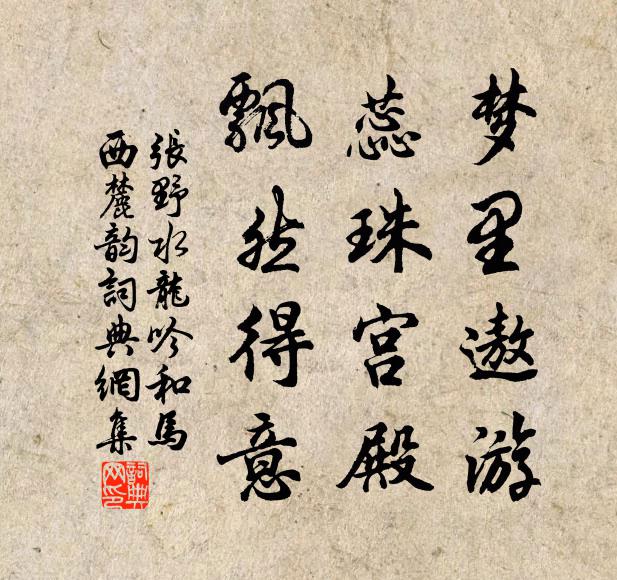 梦里遨游
蕊珠宫殿
飘然得意
張野水龍吟和馬
西麓韵詞典網集
詞典网印